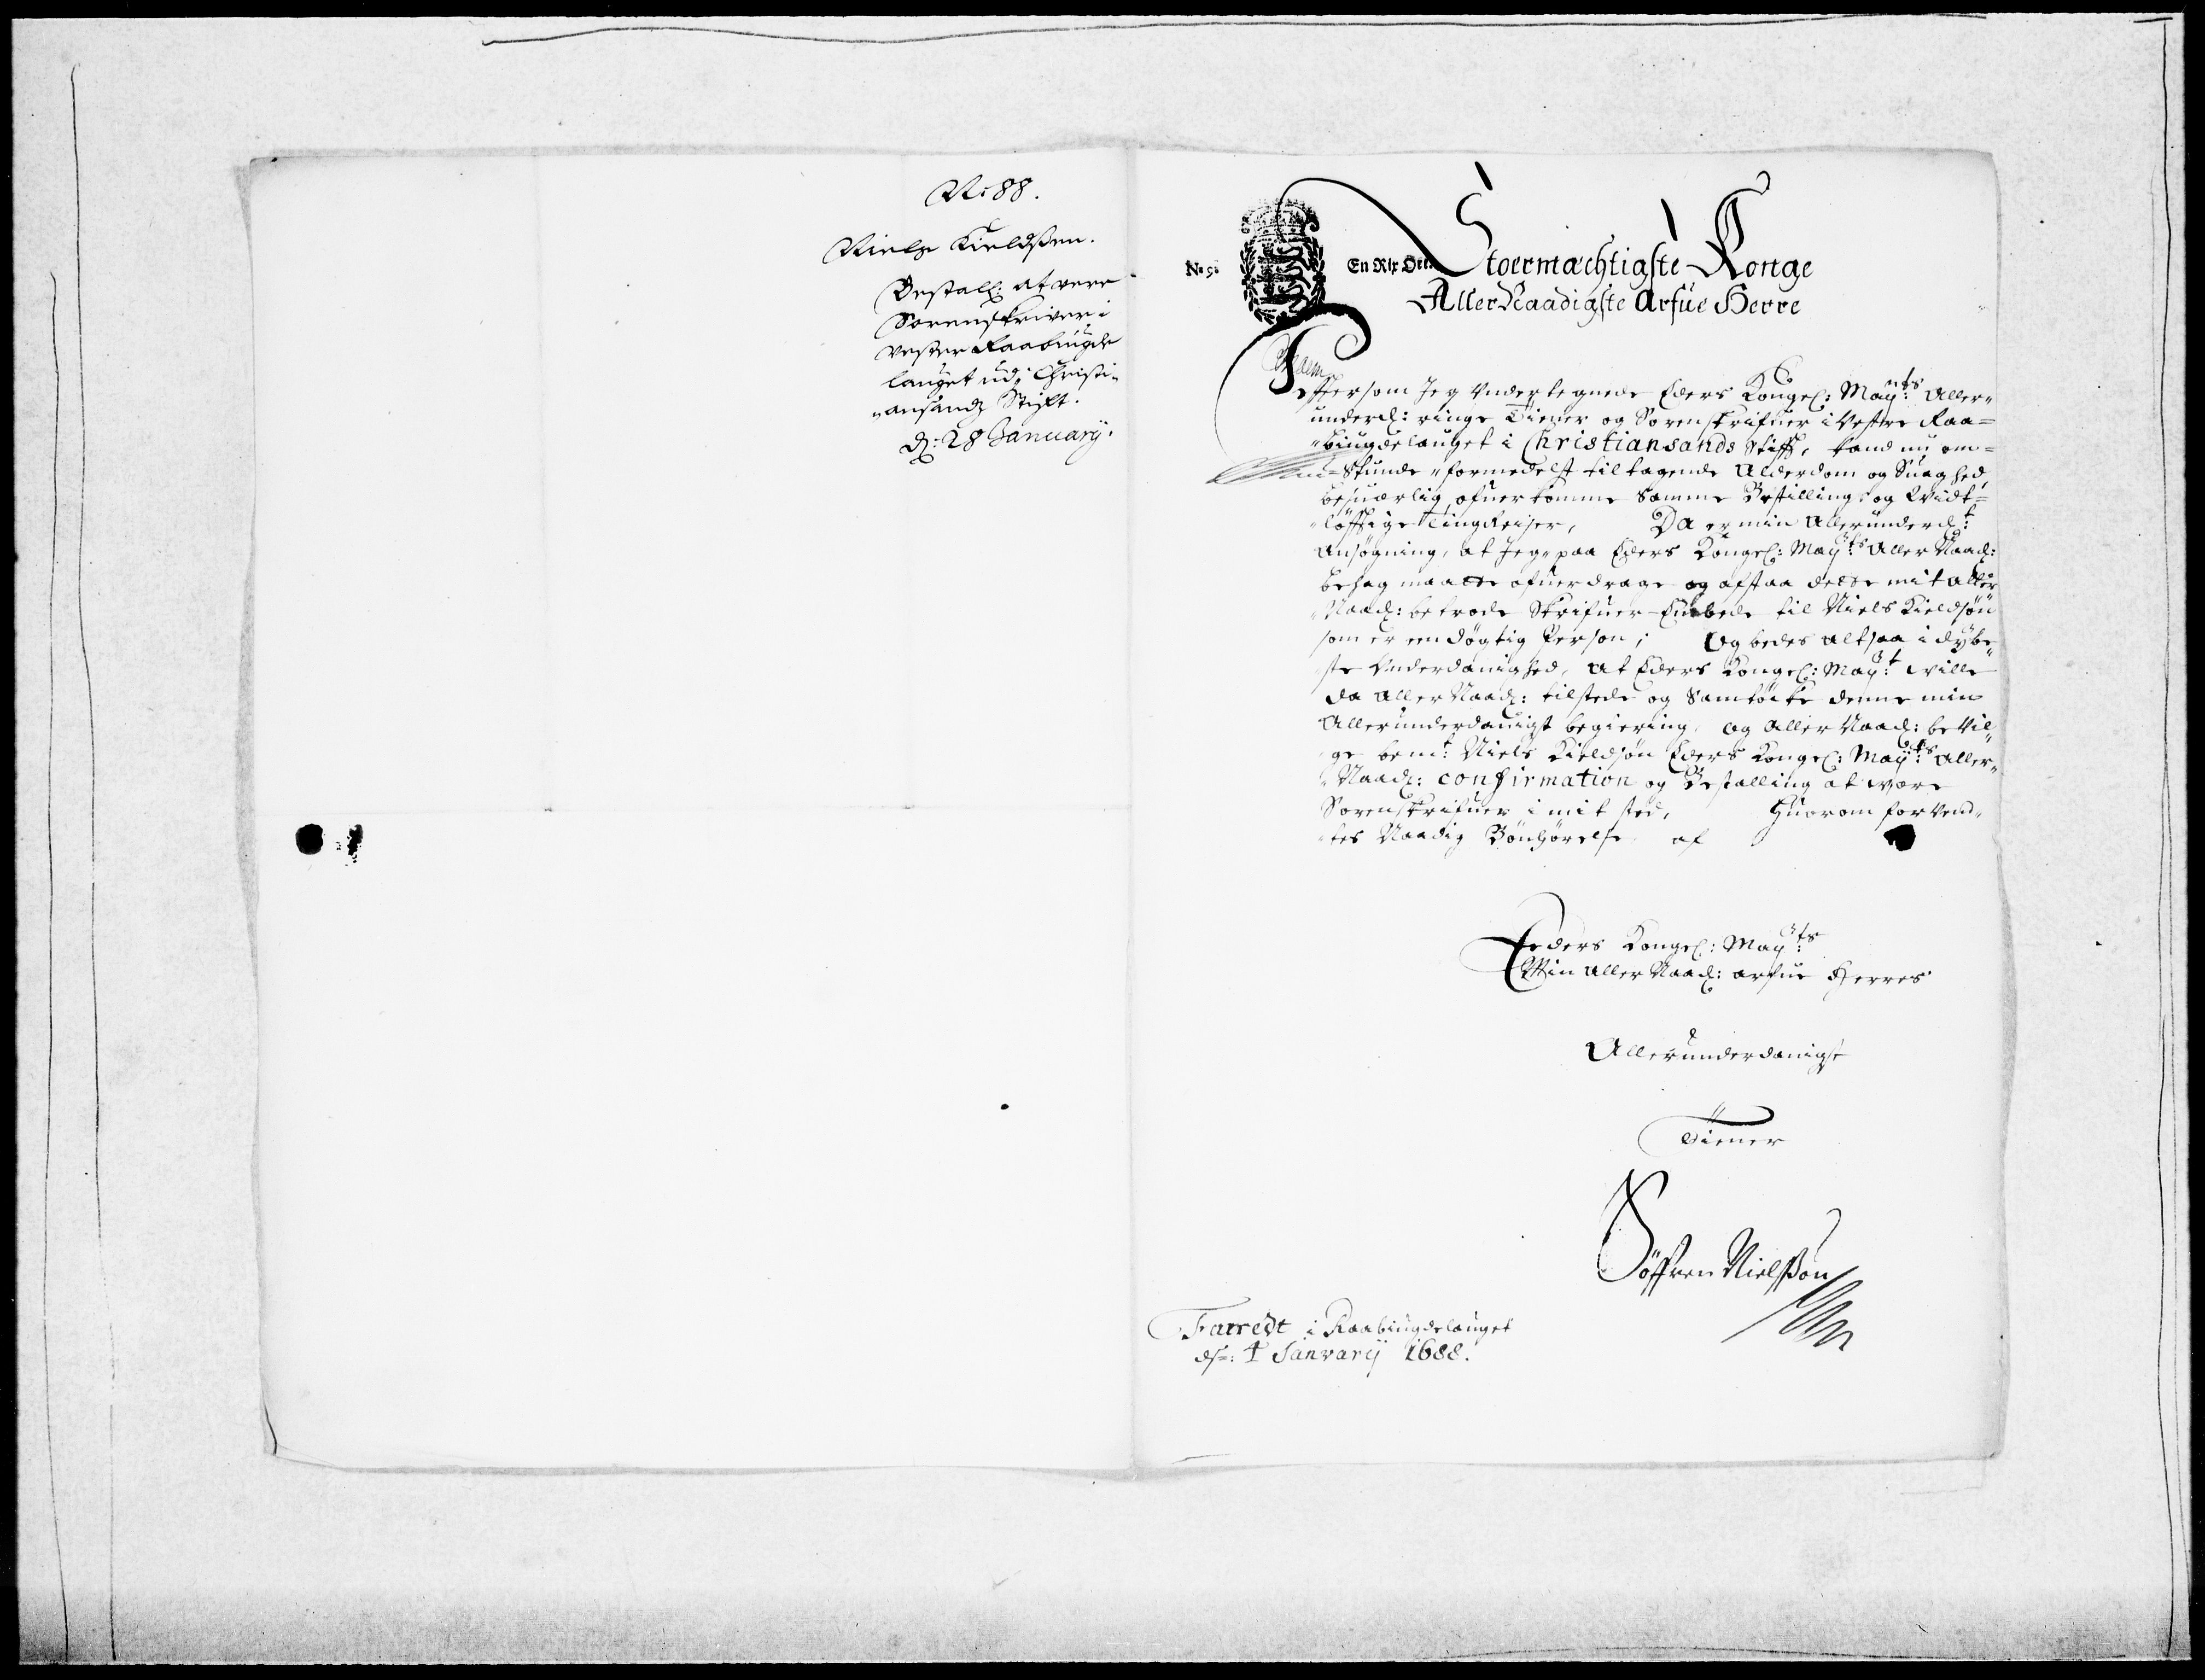 N: 88.
Niels Kieldßen.
Bestall: at vere
Sorenskriver i
Vester Raabiugde
lauget udj Christi-
ansands Stift.
d: 28 January.
No 5.
En Rix Ort.
Stoermæchtigste Konge
AllerNaadigste Arfue Herre
Efftersom Jeg Vndertegnede Eders Kongel: Mayts: Aller-
underd: ringe Tiener og Sorenskrifuer i Vestre Raa=
biugdelauget i Christiansands Stifft, kand nu om=
stunde formedelst tiltagende Alderdom og Suaghed,
besuærlig ofuerkomme samme Bestilling og Widt=
löfftige Tingreiser, Da er min Allerunderdt:
Ansøgning, at Jeg paa Eders Kongel: Mayts: Aller Naad:
behag maatte ofuerdrage og afstaa dette mit Aller
Naad: betrode Skrifuer-Embede til Niels Kieldsøn
som er een døgtig Person; Og bedes altsaa i dybe-
ste Vnderdanighed, At Eders Kongel: Mayt: wille
da AllerNaad: tilstede og Samtöcke denne min
Allerunderdanigst begiering, og Aller Naad: bevil-
ge bemt: Niels Kieldsøn Eders Kongel: Mayts: Aller-
Naad: confirmation og Bestalling at være
Sorenskrifuer i mit sted, Huorom forvend-
tes Naadig Bönhörelse af
Eders Kongel: Mayts:
Min Aller Naad: arfue Herres
Allerunderdanigst
Tiener
Söffren Nielßøn
Farredt i Raabiugdelauget
ds: 4 Janvary 1688.